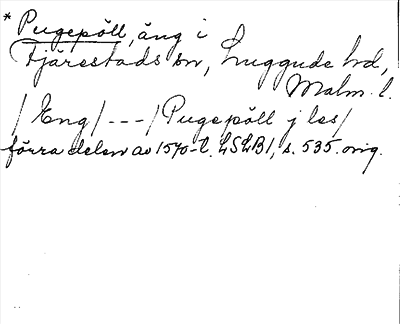 * Pugepöll, äng i
Fjärestads sn, Luggude hd,
Malm. l.
/Eng/ --- /Pugepöll j les/
förra delen av 1570-t. LSLB1, s. 535. orig.